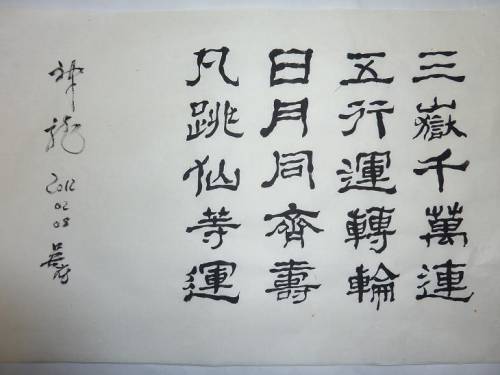 三嶽千萬連
五行運轉輪
日月同齊壽
凡跳仙等運
2012
02
08